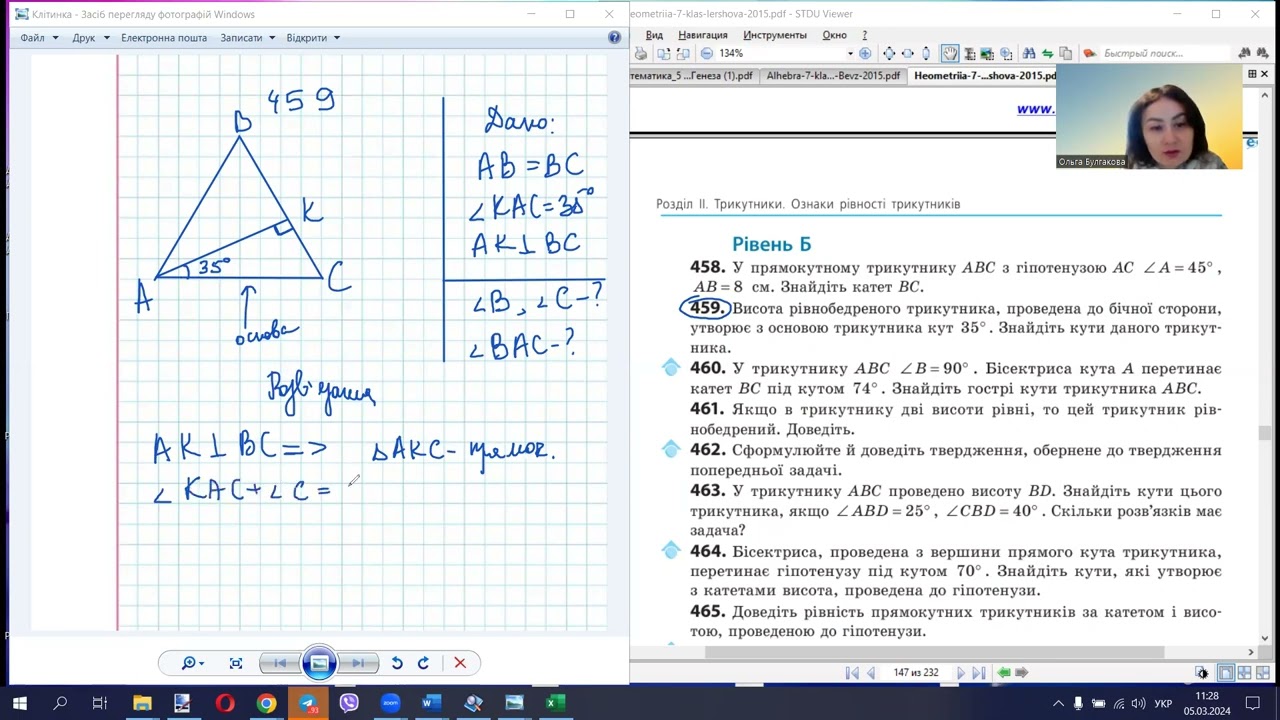 Клітинка - Засіб перегляду фотографій Windows
Файл Друк Електронна пошта Записати Відкрити
459
B
K
35°
A
C
основа
Дано:
AB = BC
∠KAC = 35°
AK ⊥ BC
∠B, ∠C - ?
∠BAC - ?
Розв'язання
AK ⊥ BC => △AKC - прямок.
∠KAC + ∠C =
Heometriia-7-klas-Iershova-2015.pdf - STDU Viewer
Вид Навигация Инструменты Окно ?
134%
Быстрый поиск...
тематика_5 ...Генеза (1).pdf
Alhebra-7-kla...-Bevz-2015.pdf
Heometriia-7-...shova-2015.pdf
www.
Ольга Булгакова
Розділ II. Трикутники. Ознаки рівності трикутників
Рівень Б
458. У прямокутному трикутнику ABC з гіпотенузою AC ∠A = 45°,
AB = 8 см. Знайдіть катет BC.
459. Висота рівнобедреного трикутника, проведена до бічної сторони,
утворює з основою трикутника кут 35°. Знайдіть кути даного трикут-
ника.
460. У трикутнику ABC ∠B = 90°. Бісектриса кута A перетинає
катет BC під кутом 74°. Знайдіть гострі кути трикутника ABC.
461. Якщо в трикутнику дві висоти рівні, то цей трикутник рів-
нобедрений. Доведіть.
462. Сформулюйте й доведіть твердження, обернене до твердження
попередньої задачі.
463. У трикутнику ABC проведено висоту BD. Знайдіть кути цього
трикутника, якщо ∠ABD = 25°, ∠CBD = 40°. Скільки розв'язків має
задача?
464. Бісектриса, проведена з вершини прямого кута трикутника,
перетинає гіпотенузу під кутом 70°. Знайдіть кути, які утворює
з катетами висота, проведена до гіпотенузи.
465. Доведіть рівність прямокутних трикутників за катетом і висо-
тою, проведеною до гіпотенузи.
147 из 232
УКР
11:28
05.03.2024